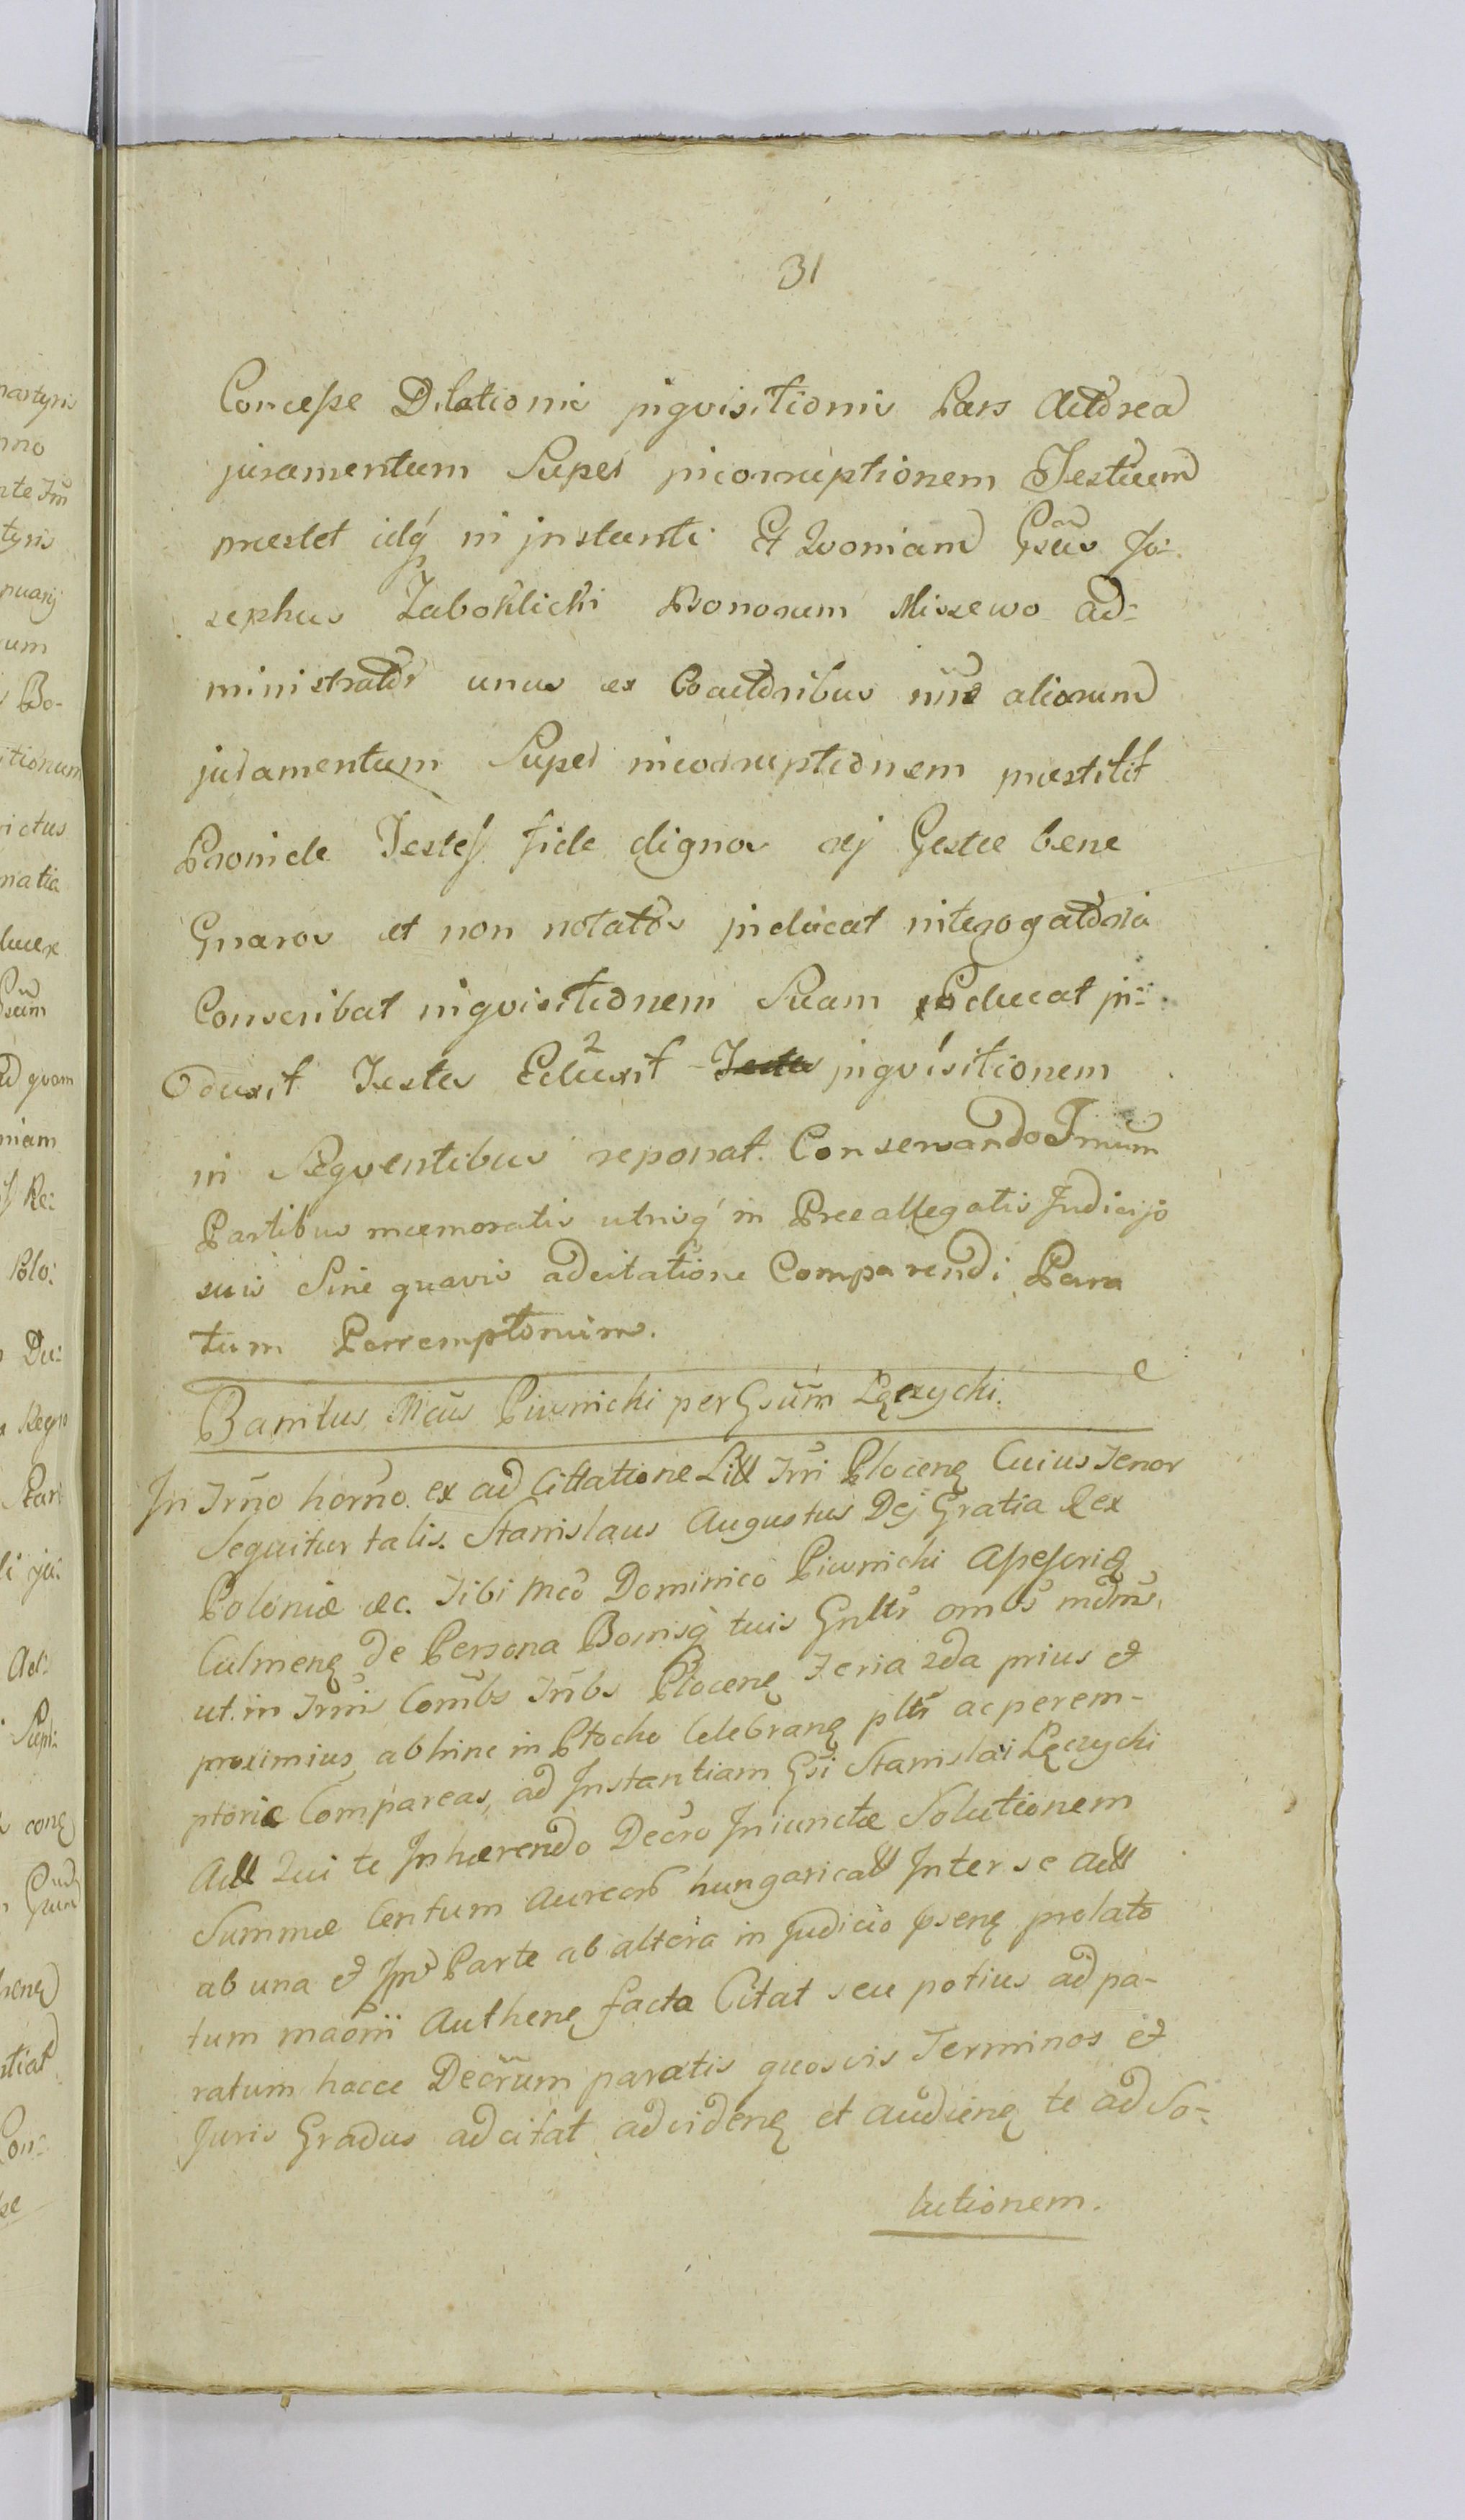 31
Concesse Dilationis jnqvisitionis Pars Actorea
juramentum Super jncorruptionem Testium
præstet idq́ in jnstanti Et Qvoniam Gsus Jo-
sephus Zaboklicki Bonorum Missewo ad-
ministrator unus ex Coactoribus nne aliorum
juramentum Super incorruptionem præstitit
Proinde Testes fide dignos rej Gestæ bene
Gnaros et non notatos jnducat interogatoria
Conscribat inqvisitionem Suam Educat jn-
duxit Testes Eduxit jnqvisitionem
in Seqventibus reponat. Conservando Trnum
Partibus mæmoratis utrisq́ in Præallegatis Judicijs
suis Sine quavis adcitatione Comparendi Para
tum Perremptorium.
Banitus Mcus Piwnicki per Gsum Łęczycki.
In Trño horño ex ad Cittatione Litt Trri Plocenę Cuius Tenor
Sequitur talis. Stanislaus Augustus Dej Gratia Rex
Poloniæ &c. Tibi Mco Dominico Piwnicki Assessoriæ
Culmenę de Persona Bonisq́ tuis Gnltr ombs mdms,
ut in Trmi Combs Trribs Plocenę Feria 2da prius et
proximius abhinc in Płocko Celebranę pltr ac perem-
ptorie Compareas, ad Instantiam Gsi Stanislai Łęczycki
Act Qui te Inhærendo Decro Iniunctæ Solutionem
Summæ Centum Aureorb hungaricall Inter se Act
ab una et Parte ab altera in Judicio psenę prolato
tum Authenę facta Citat seu potius ad pa-
ratum hocce Decrum paratis quosvis Terminos et
Juris Gradus adcitat ad videnę et audienę te ad So-
lutionem.